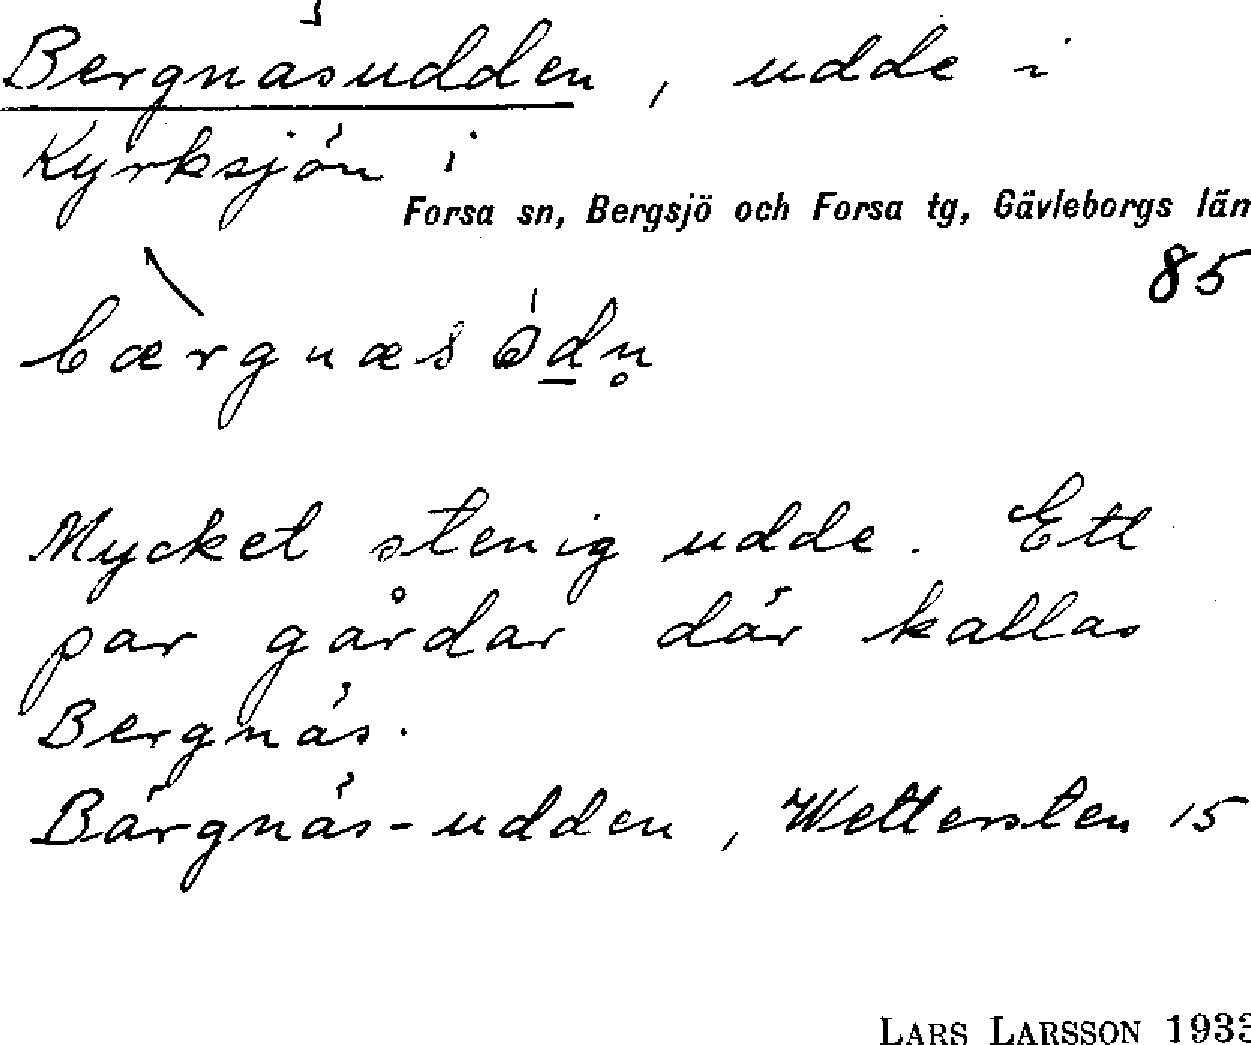 Bergnäsudden, udde i
Kyrksjön i
Forsa sn, Bergsjö och Forsa tg, Gävleborgs län
85
bærgnæsòdn̥
Mycket stenig udde. Ett
par gårdar där kallas
Bergnäs.
Bärgnäs-udden, Wettersten 15
LARS LARSSON 1933